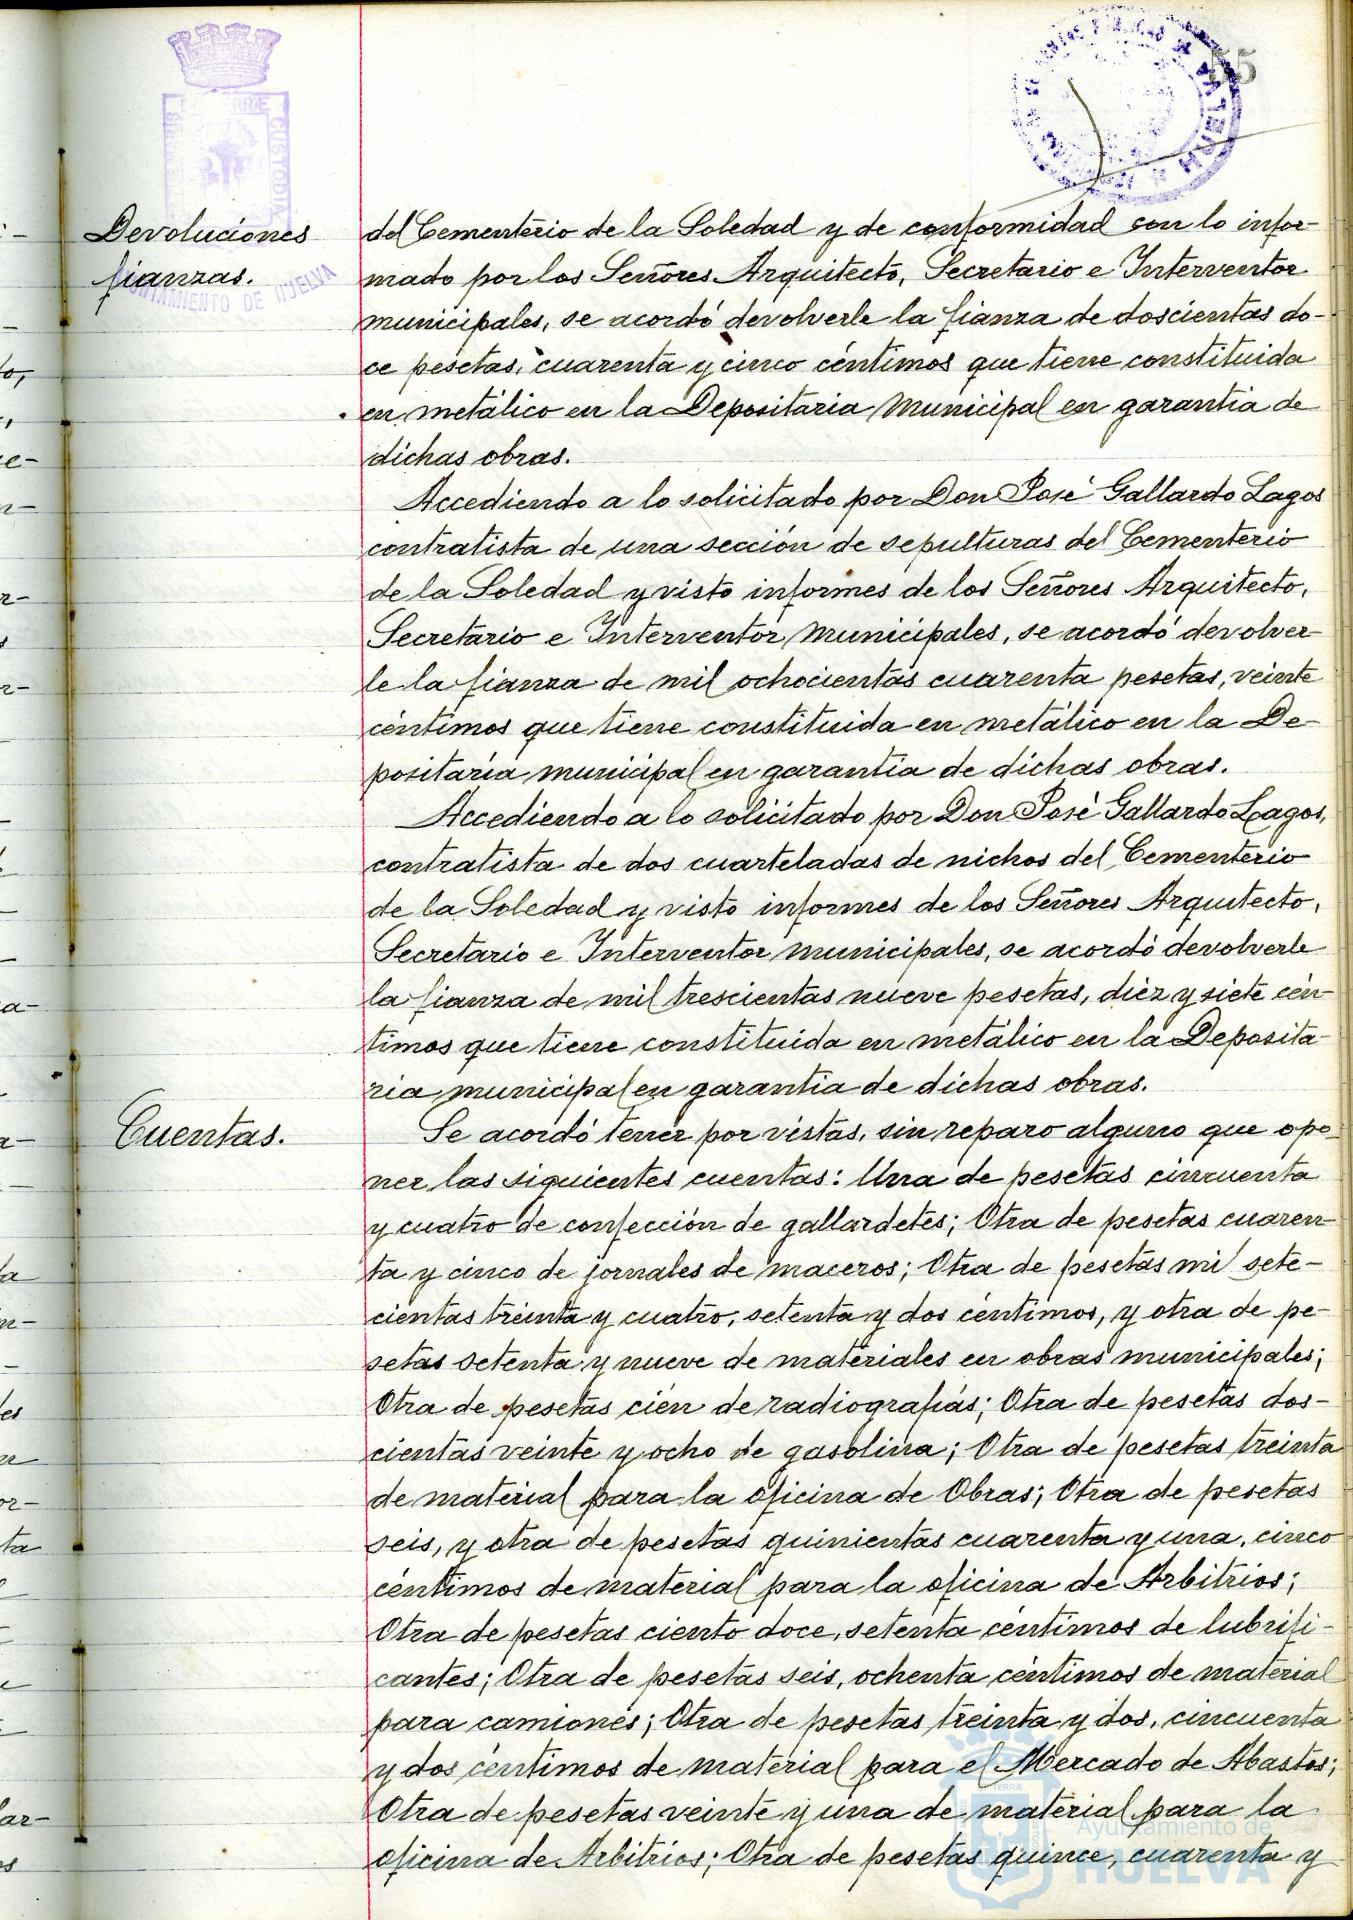 55
HUELVA
CUSTODIA
AYUNTAMIENTO DE HUELVA
Devoluciones
fianzas.
del Cementerio de la Soledad y de conformidad con lo infor-
mado por los Señores Arquitecto, Secretario e Interventor
municipales, se acordó devolverle la fianza de doscientas do-
ce pesetas, cuarenta y cinco céntimos que tiene constituida
en metálico en la Depositaria Municipal en garantia de
dichas obras.
Accediendo a lo solicitado por Don José Gallardo Lagos
contratista de una sección de sepulturas del Cementerio
de la Soledad y visto informes de los Señores Arquitecto,
Secretario e Interventor municipales, se acordó devolver-
le la fianza de mil ochocientas cuarenta pesetas, veinte
céntimos que tiene constituida en metálico en la De-
positaria municipal en garantia de dichas obras.
Accediendo a lo solicitado por Don José Gallardo Lagos,
contratista de dos cuarteladas de nichos del Cementerio
de la Soledad y visto informes de los Señores Arquitecto,
Secretario e Interventor municipales, se acordó devolverle
la fianza de mil trescientas nueve pesetas, diez y siete cén-
timos que tiene constituida en metálico en la Deposita-
ria municipal en garantia de dichas obras.
Cuentas.
Se acordó tener por vistas, sin reparo alguno que opo-
ner las siguientes cuentas: Una de pesetas cincuenta
y cuatro de confección de gallardetes; Otra de pesetas cuaren-
ta y cinco de jornales de maceros; Otra de pesetas mil sete-
cientas treinta y cuatro, setenta y dos céntimos, y otra de pe-
setas setenta y nueve de materiales en obras municipales;
Otra de pesetas cién de radiografiás; Otra de pesetas dos-
cientas veinte y ocho de gasolina; Otra de pesetas treinta
de material para la oficina de Obras; Otra de pesetas
seis, y otra de pesetas quinientas cuarenta y una, cinco
céntimos de material para la oficina de Arbitrios;
Otra de pesetas ciento doce, setenta céntimos de lubrifi-
cantes; Otra de pesetas seis, ochenta céntimos de material
para camiones; Otra de pesetas treinta y dos, cincuenta
y dos céntimos de material para el Mercado de Abastos;
Otra de pesetas veinte y una de material para la
oficina de Arbitrios; Otra de pesetas quince, cuarenta y
Ayuntamiento de
HUELVA